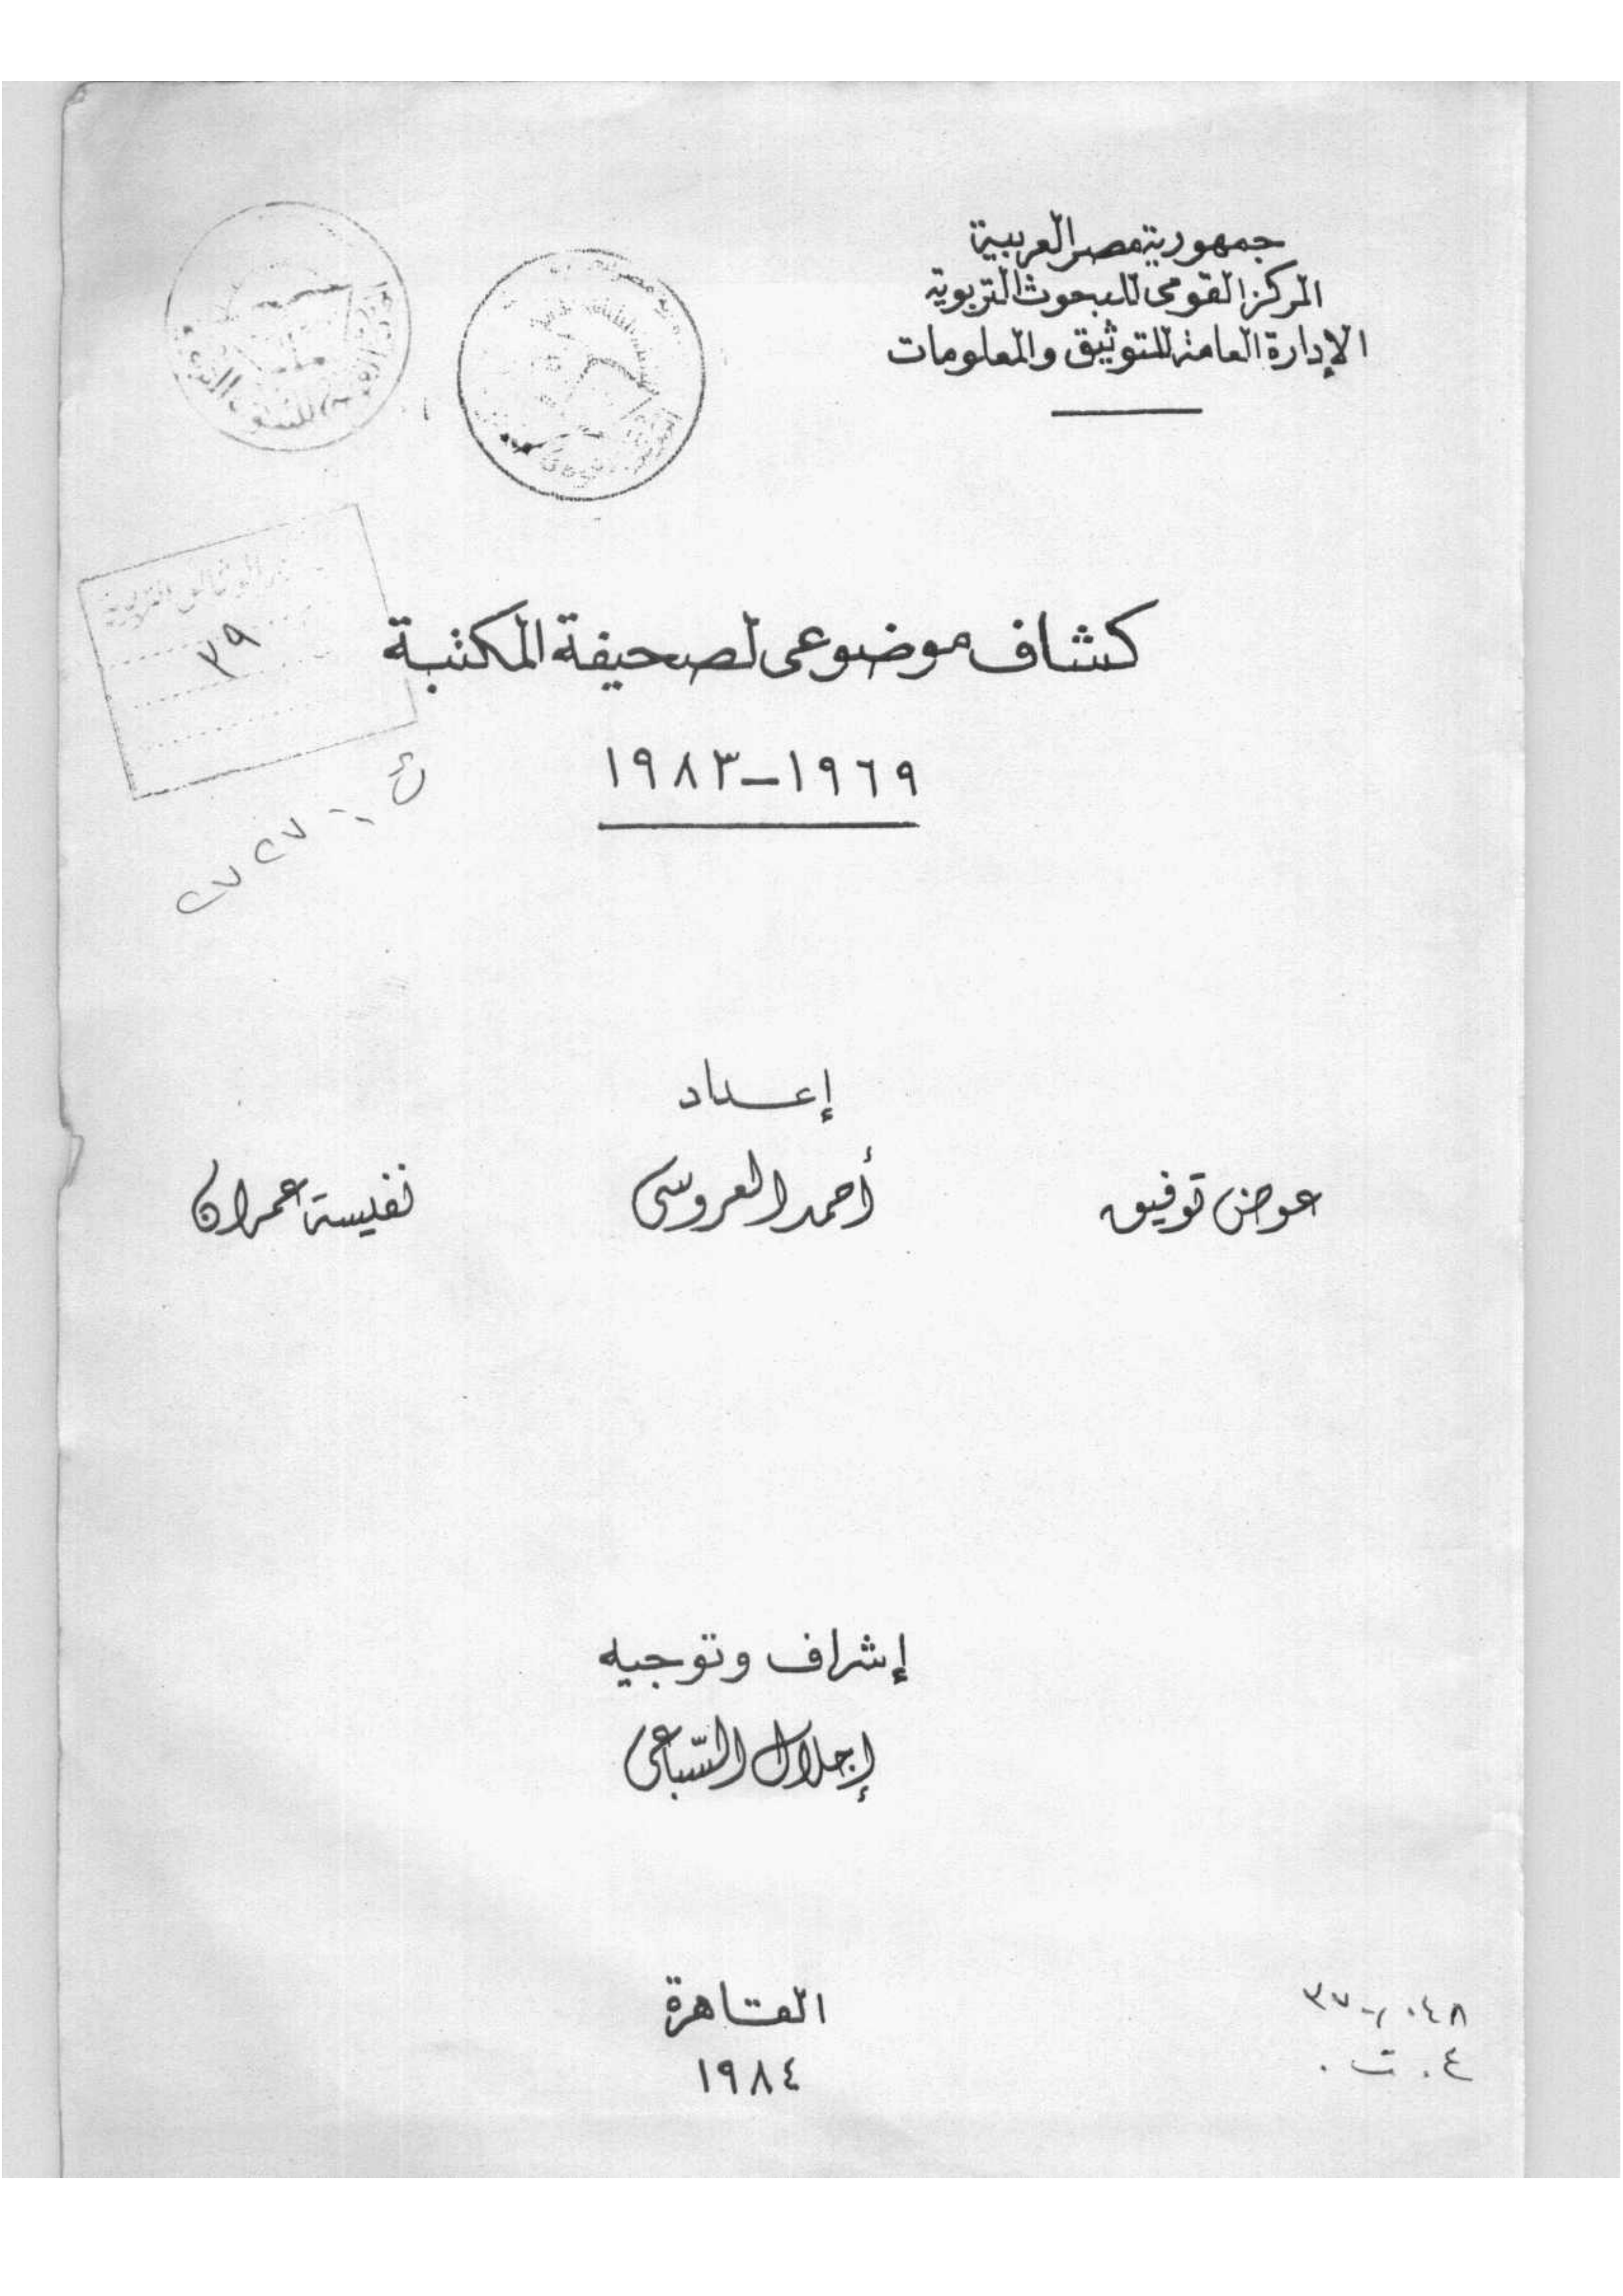 جمهورية مصر العربية
المركز القومى للبحوث التربوية
الإدارة العامة للتوثيق والمعلومات
كشاف موضوعى لصحيفة المكتبة
١٩٦٩-١٩٨٣
٣٩
إعداد
عوض توفيق
أحمد العروسى
نفيسة عمران
إشراف وتوجيه
إجلال السّباعى
القاهرة
١٩٨٤